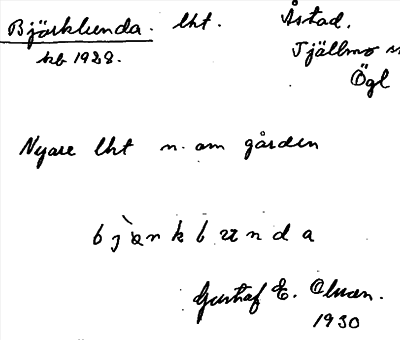 Björklunda. lht. Åstad.
kb 1928. Tjällmo sn
Ögl
Nyare lht n. om gården
Gustaf E. Olsson.
1930